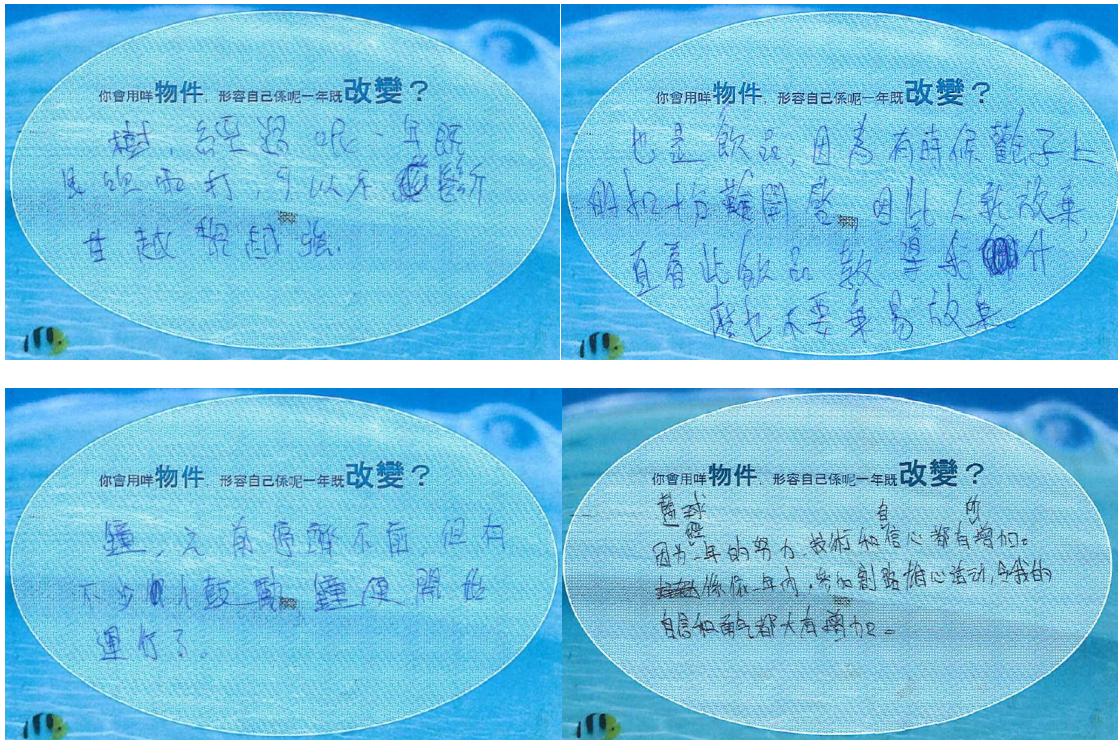 你會用咩物件, 形容自己係呢一年既改變?
樹, 經過呢一年既
風吹雨打, 可以不斷
甘越黎越強.
你會用咩物件, 形容自己係呢一年既改變?
也是飲品, 因為有時候蓋子上
十分難開啓, 因此人就放棄,
直着此飲品教導我什
麼也不要棄易放棄。
你會用咩物件, 形容自己係呢一年既改變?
鐘, 之前停躋不前, 但有
不少人鼓勵, 鐘便開始
運行了。
你會用咩物件, 形容自己係呢一年既改變?
籃球
因为經一年的努力, 技術和自信心都有所增加。
係依一年內, 參加創路雄心活动, 令我的
自信和勇气都大有增加。